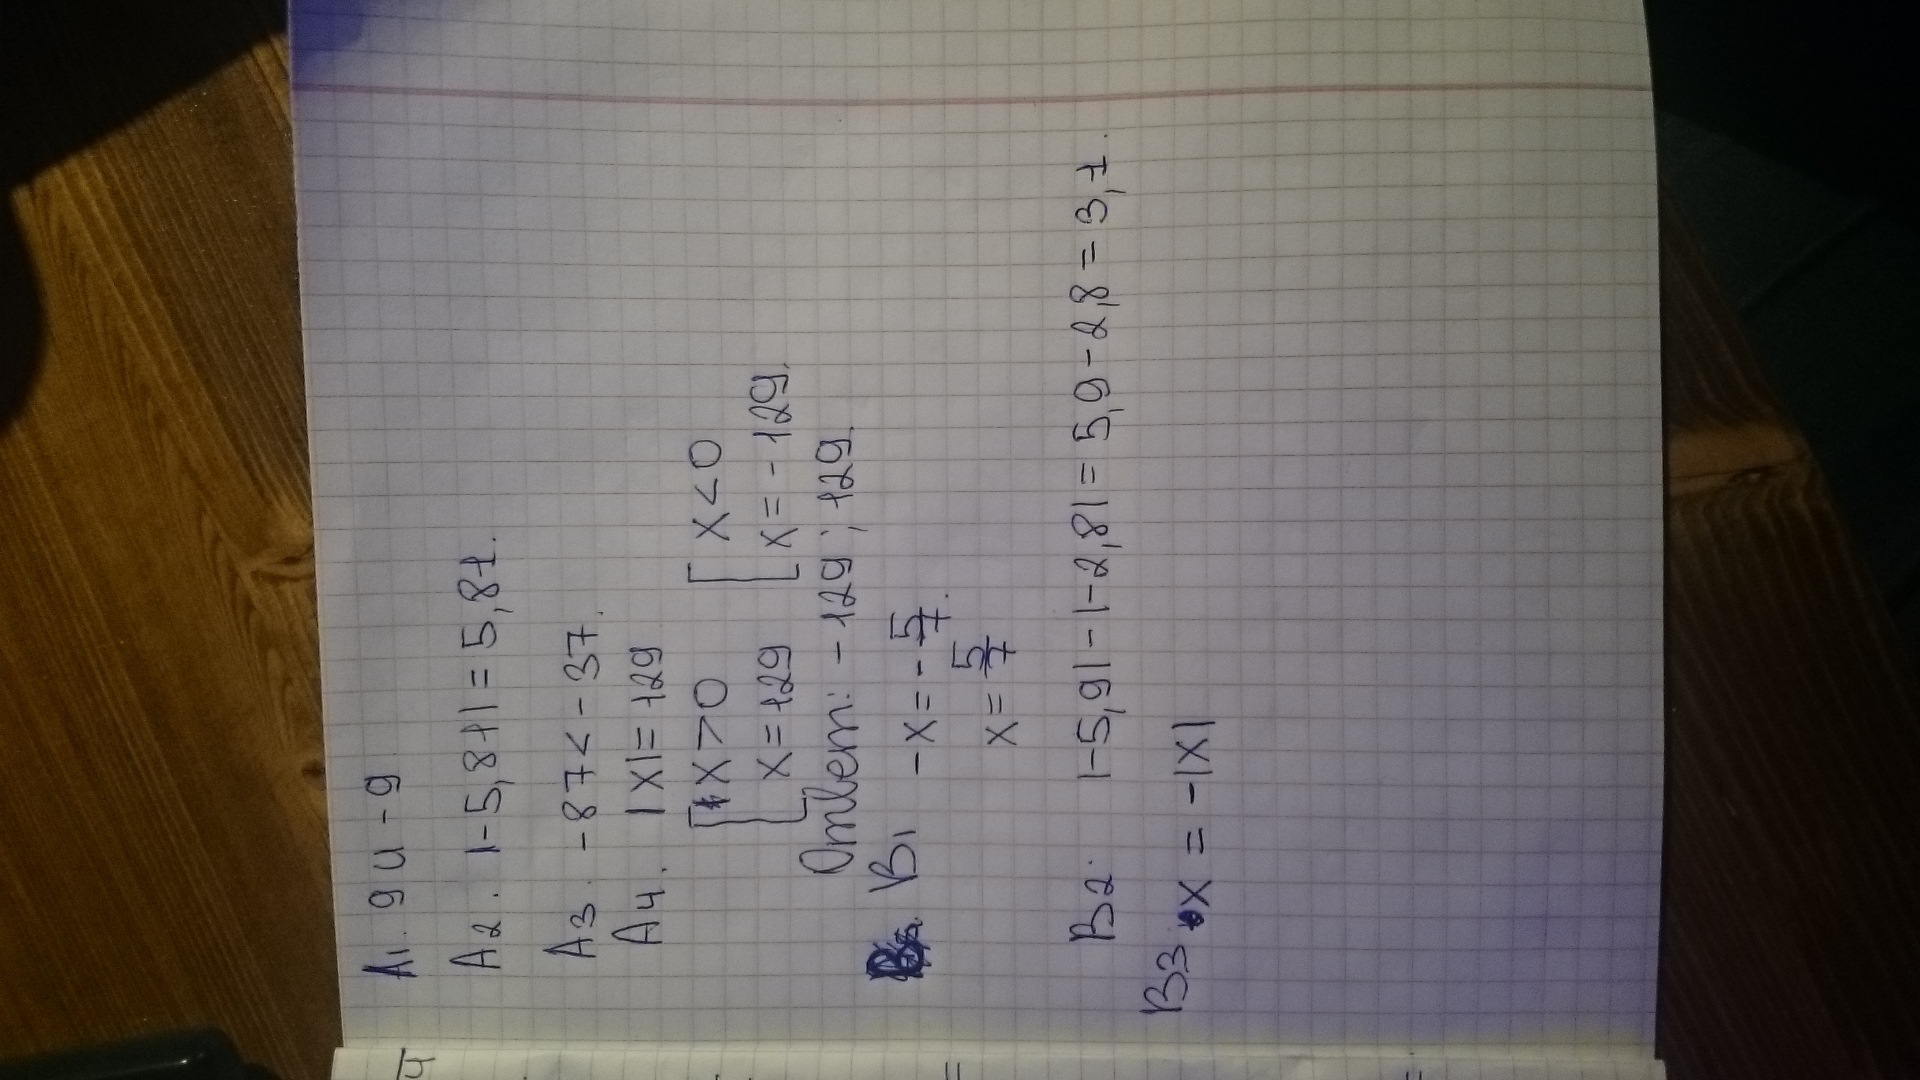 А1. 9 и -9
А2. |-5,81| = 5,81.
А3. -87 < -37.
А4. |x| = 129
[x > 0 [x < 0
[x = 129 [x = -129.
Ответ: -129; 129.
В1 -x = -5/7.
x = 5/7
В2. |-5,9| - |-2,8| = 5,9 - 2,8 = 3,1.
В3. x = -|x|